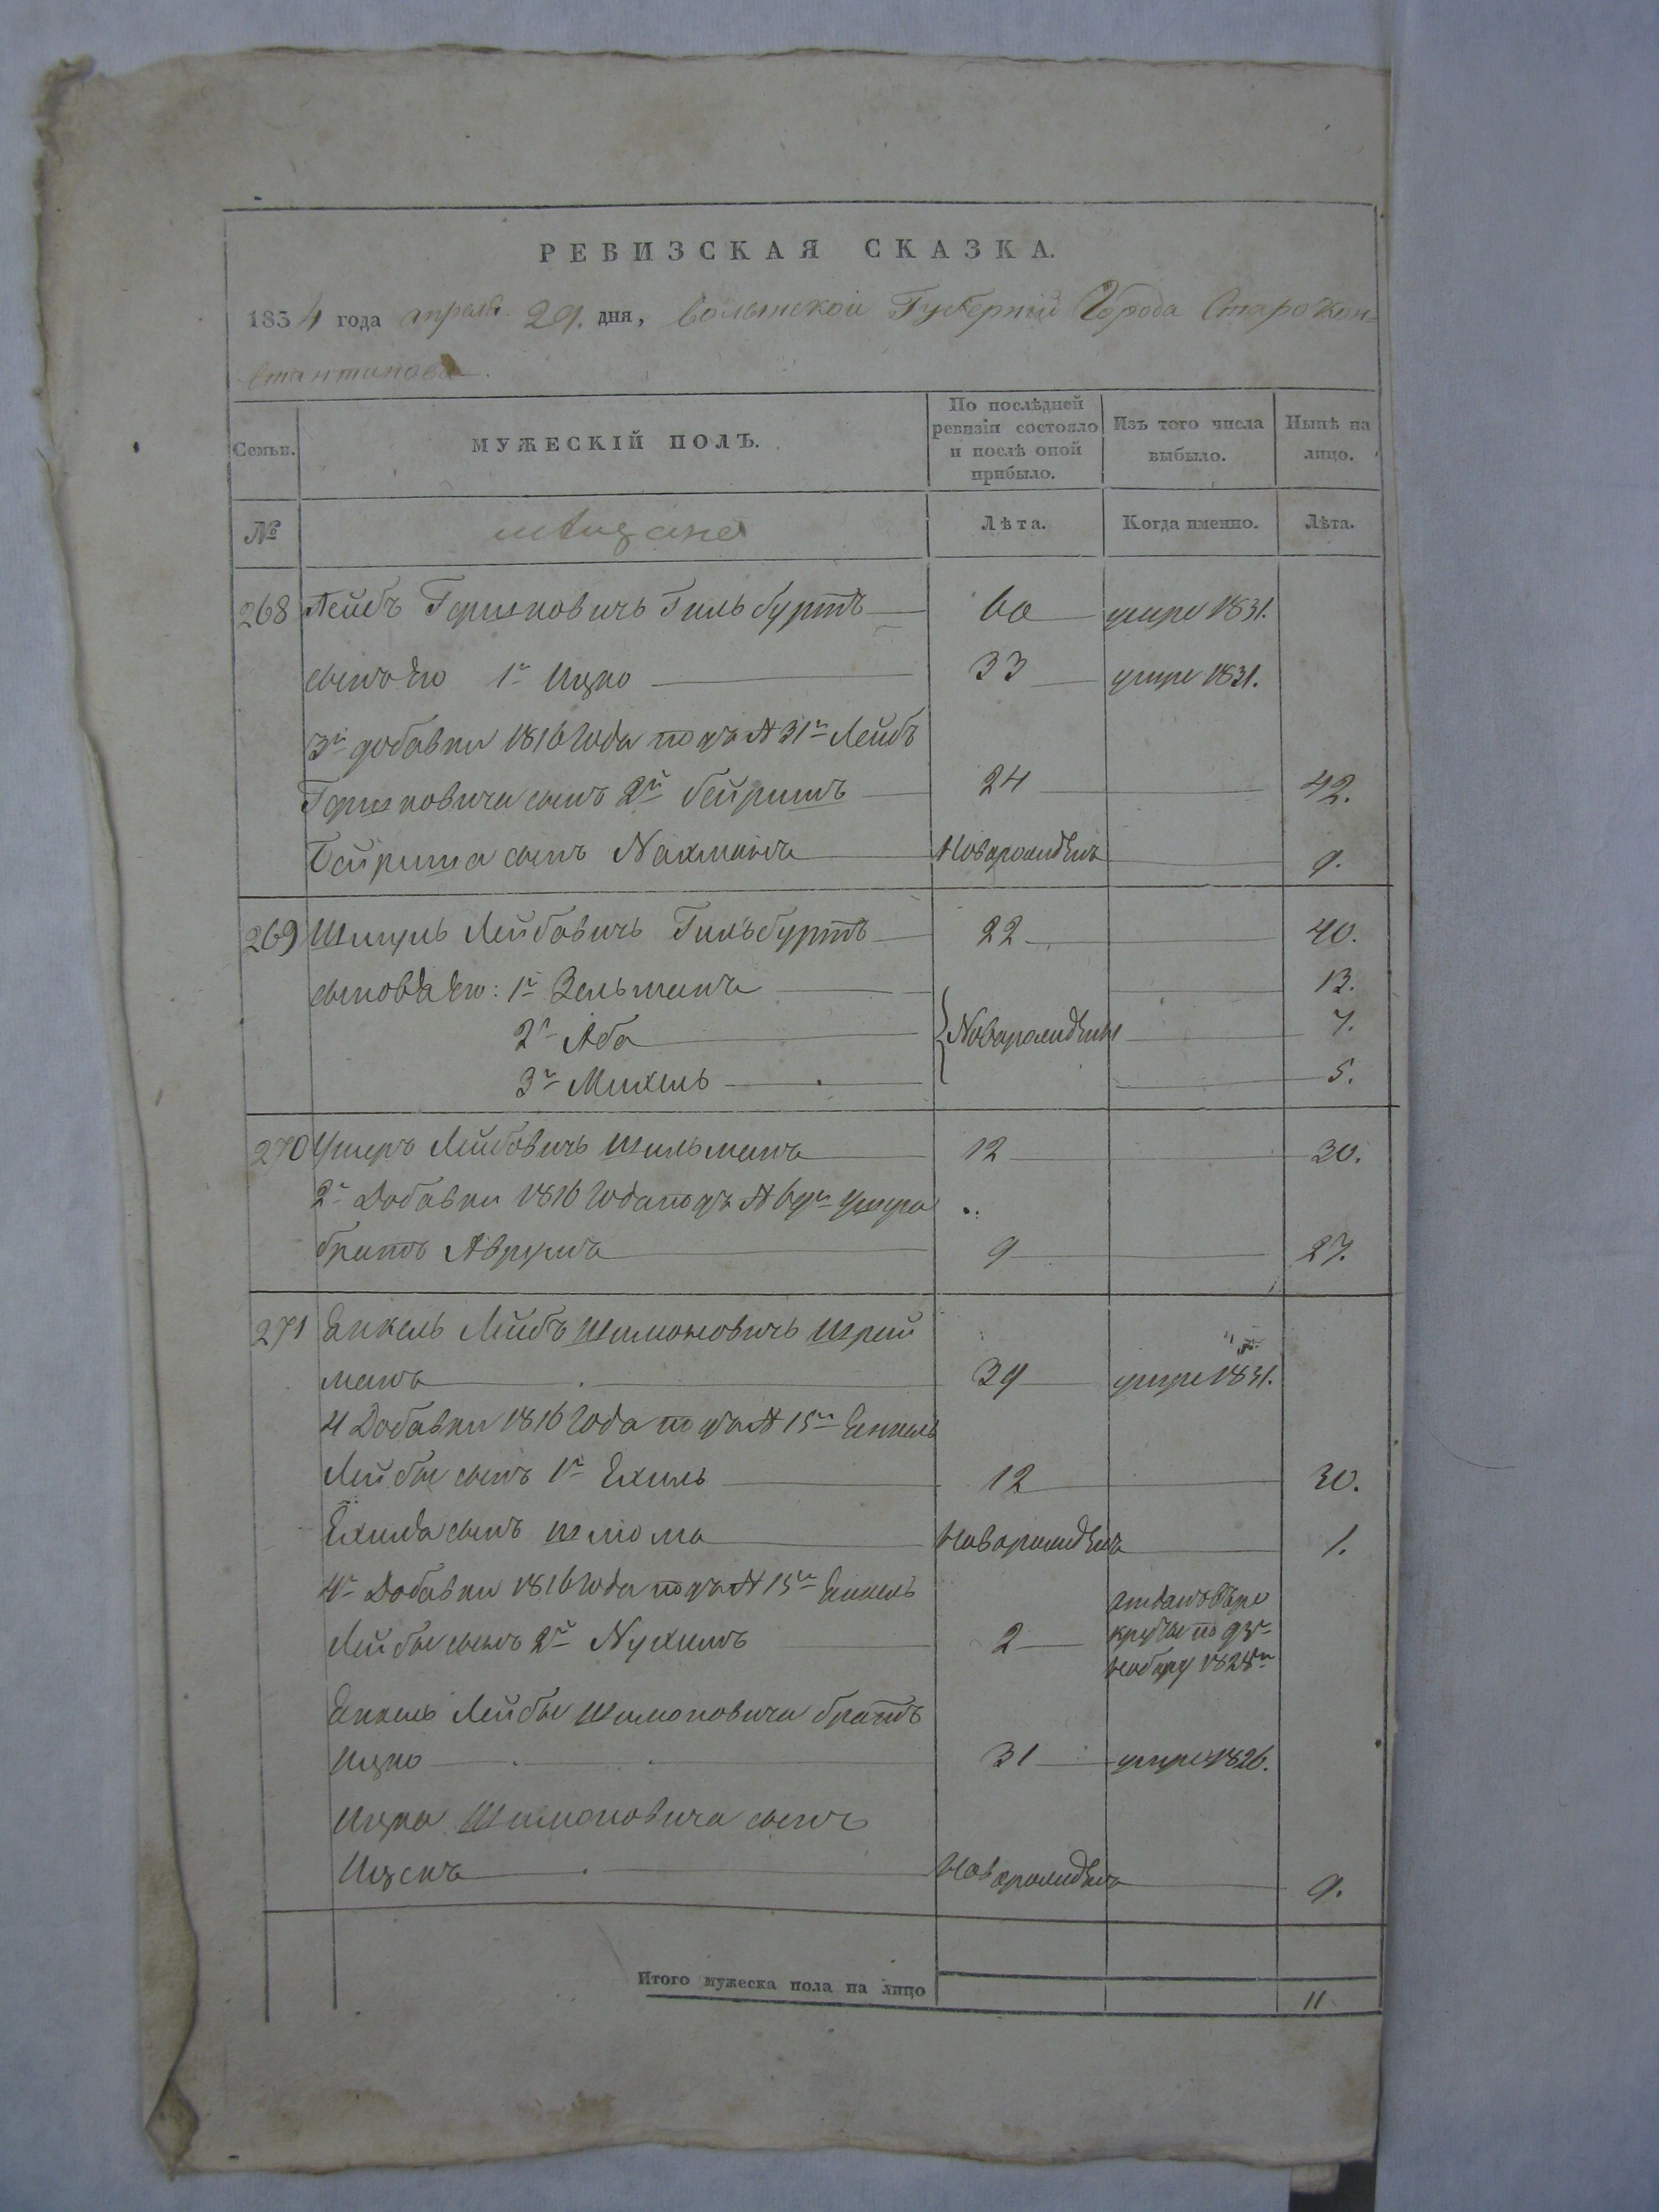 РЕВИЗСКАЯ СКАЗКА.
1834 года апреля 29. дня, Волынской Губерніи Города Старокон=
стантинова.
Семьи. МУЖЕСКІЙ ПОЛЪ. По послѣдней ревизіи состояло и послѣ оной прибыло. Изъ того числа выбыло. Нынѣ на лицо.
№ мѣщане Лѣта. Когда именно. Лѣта.
268 Лейбъ Гершковичъ Гильбуртъ 60 умре 1831.
сынъ его 1й Ицко 33 умре 1831.
3й добавки 1816 года подъ № 31м Лейбъ
Гершковича сынъ 2й Бейришъ 24 42.
Бейриша сынъ Нахманъ Новорожденъ 9.
269 Шмуль Лейбовичъ Гильбуртъ 22 40.
сыновья его: 1й Зельманъ 13.
2й Аба Новорожденны 7.
3й Михель 5.
270 Ушеръ Лейбовичъ Шильманъ 12 30.
2й Добавки 1816 года подъ № 6м Ушера
братъ Аврумъ 9 27.
271 Енкель Лейбъ Шимоновичъ Шрей
манъ 39 умре 1831.
4 Добавки 1816 года подъ № 15м Енкель
Лейбы сынъ 1й Ехиль 12 30.
Ехиля сынъ Шлома Новорожденъ 1.
4й Добавки 1816 года подъ № 15м Енкель
Лейбы сынъ 2й Нухимъ 2 отданъ въ ре
круты по 93м
набору 1828го
Енкель Лейбы Шимоновича братъ
Ицко 31 умре 1826.
Ицка Шимоновича сынъ
Новорожденъ 9.
Итого мужеска пола на лицо 11